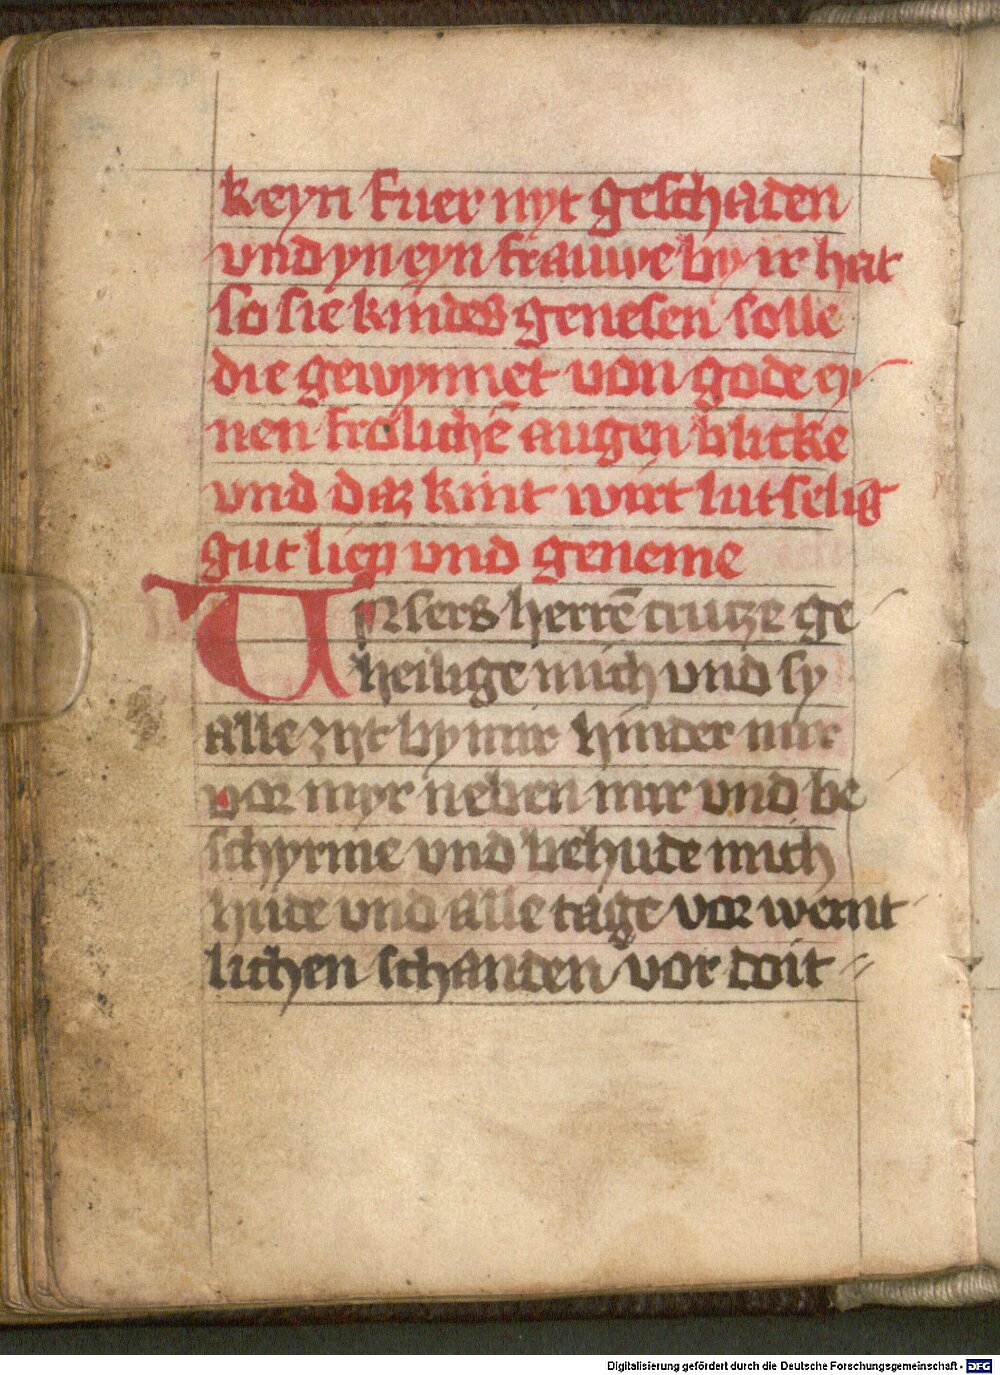 keyn fuer nyt geschaden
vnd yn eyn frauwe by ir hat
so sie kindes genesen solle
die gewynnet von gode ey-
nen frolichē augen blicke
vnd daz kint wirt lutselig
gut liep vnd geneme
Unsers herrē crutze ge-
heilige mich vnd sy
alle zijt by mir hinder mir
vor myr neben mir vnd be-
schyrme vnd behude mich
hude vnd alle tage vor wernt-
lichen schanden vor doit=
Digitalisierung gefördert durch die Deutsche Forschungsgemeinschaft - DFG